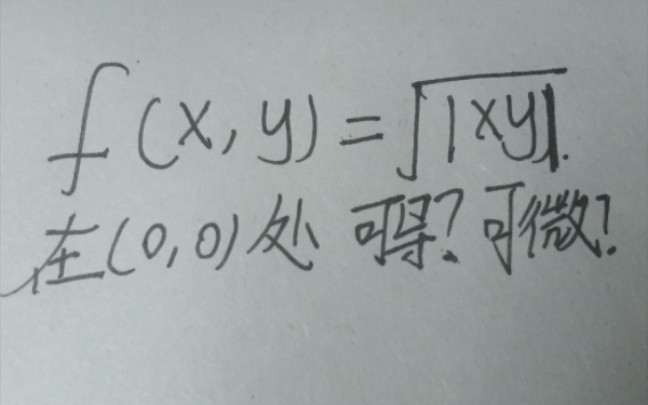 f(x,y)=√|xy|.
在(0,0)处 可导?可微?